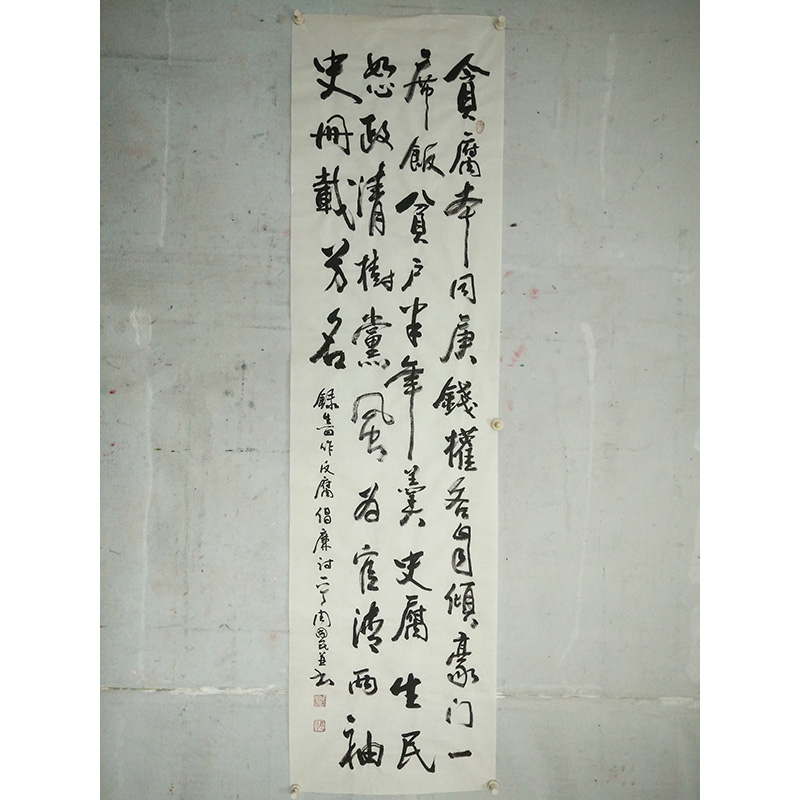 貪腐本同庚錢權各自傾豪门一
席飯貧户半年羹吏腐生民
怒政清樹黨風为官清两袖
史冊載芳名
錄舊作反腐倡廉诗一首周國民並书